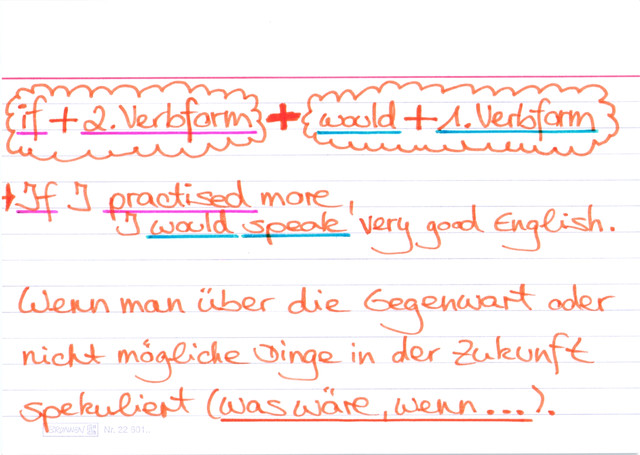 if + 2. Verbform + would + 1. Verbform
If I practised more,
I would speak very good English.
Wenn man über die Gegenwart oder
nicht mögliche Dinge in der Zukunft
spekuliert (was wäre, wenn...).
Nr. 22 901